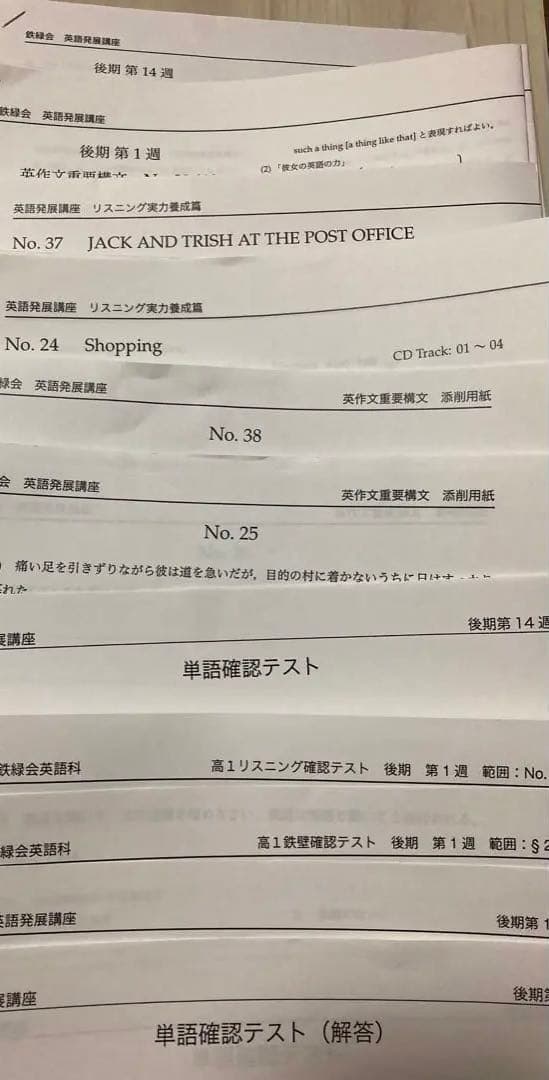 鉄緑会 英語発展講座
後期 第14週
鉄緑会 英語発展講座
後期 第1週
such a thing [a thing like that] と表現すればよい。
(2) 「彼女の英語の力」
英作文重要構文
英語発展講座 リスニング実力養成篇
No. 37 JACK AND TRISH AT THE POST OFFICE
英語発展講座 リスニング実力養成篇
No. 24 Shopping
CD Track: 01 〜 04
緑会 英語発展講座
英作文重要構文 添削用紙
No. 38
会 英語発展講座
英作文重要構文 添削用紙
No. 25
痛い足を引きずりながら彼は道を急いだが，目的の村に着かないうちに日は
れた
展講座
後期第14週
単語確認テスト
鉄緑会英語科
高1リスニング確認テスト 後期 第1週 範囲：No.
緑会英語科
高1鉄壁確認テスト 後期 第1週 範囲：§2
英語発展講座
後期第1
展講座
後期第
単語確認テスト（解答）